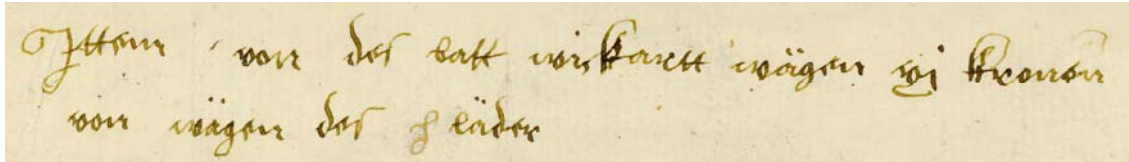 Ittem von des batt wickartt wägen xj kronen
von wägen des läder